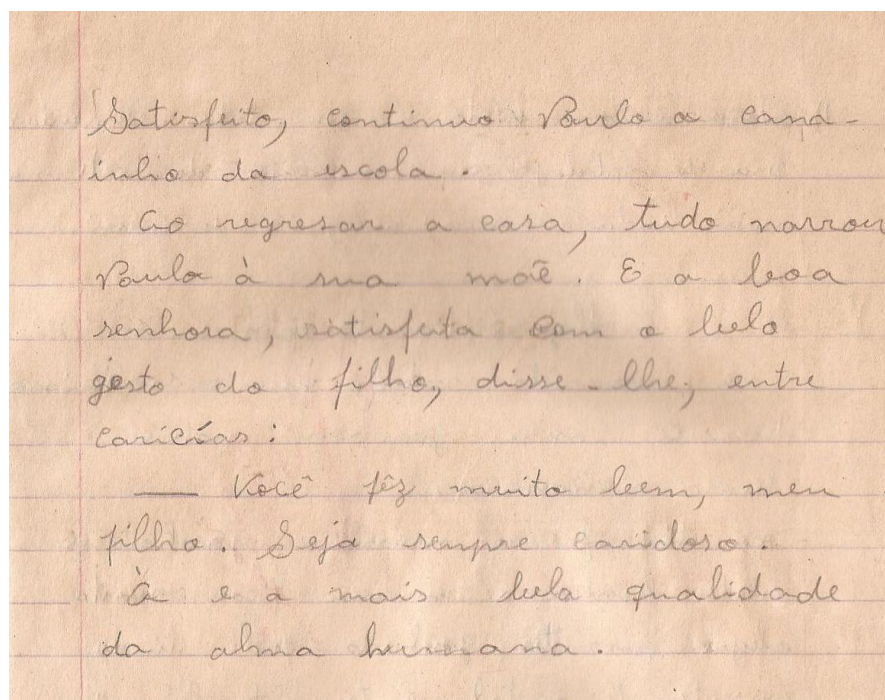 Satisfeito, continuo Paulo a cama-
inho da escola.
Ao regresar a casa, tudo narrou
Paulo à sua mãe. E a boa
senhora, satisfeita com o belo
gesto do filho, disse-lhe, entre
carícias:
— Você fêz muito bem, meu
filho. Seja sempre caridoso.
À e a mais bela qualidade
da alma humana.